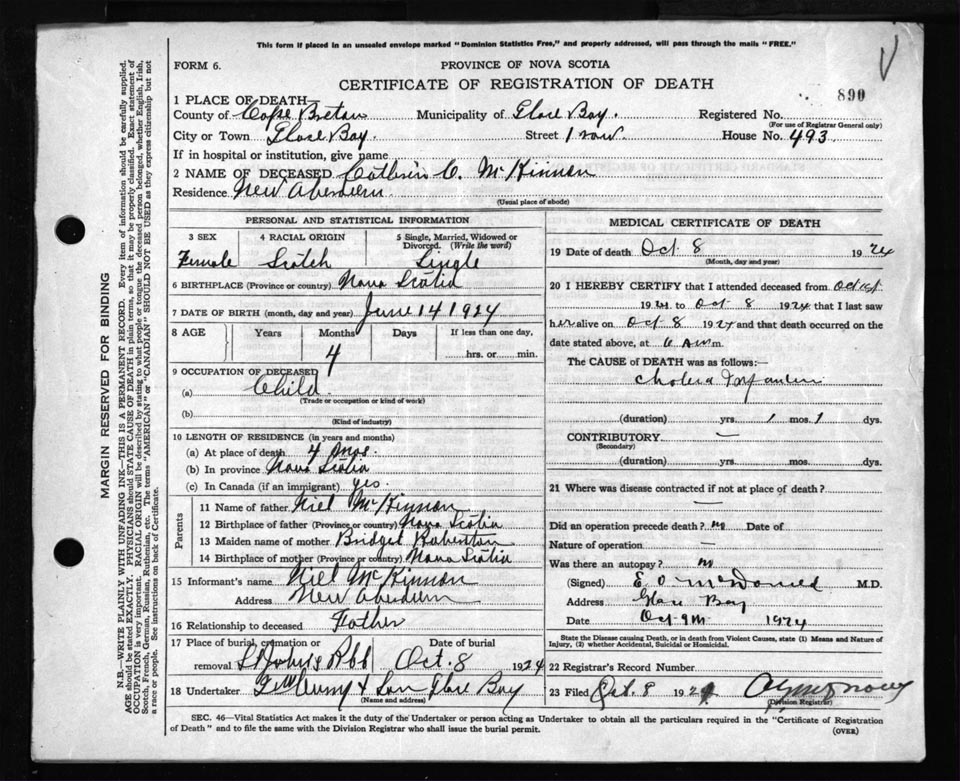 This form if placed in an unsealed envelope marked "Dominion Statistics Free," and properly addressed, will pass through the mails "FREE."
FORM 6.
PROVINCE OF NOVA SCOTIA
CERTIFICATE OF REGISTRATION OF DEATH
890
1 PLACE OF DEATH
County of Cape Breton Municipality of Glace Bay. Registered No.
(For use of Registrar General only)
City or Town Glace Bay. Street 1 row House No. 493
If in hospital or institution, give name
2 NAME OF DECEASED C. McKinnon
Residence New Aberdeen
(Usual place of abode)
PERSONAL AND STATISTICAL INFORMATION
3 SEX 4 RACIAL ORIGIN 5 Single, Married, Widowed or Divorced. (Write the word)
Female Scotch Single
6 BIRTHPLACE (Province or country) Nova Scotia
7 DATE OF BIRTH (month, day and year) June 14 1924
8 AGE Years Months Days If less than one day,
4 hrs. or min.
9 OCCUPATION OF DECEASED
(a) Child
(Trade or occupation or kind of work)
(b)
(Kind of industry)
10 LENGTH OF RESIDENCE (in years and months)
(a) At place of death 4 mos.
(b) In province Nova Scotia
(c) In Canada (if an immigrant) yes.
Parents
11 Name of father Niel McKinnon
12 Birthplace of father (Province or country) Nova Scotia
13 Maiden name of mother Bridget
14 Birthplace of mother (Province or country) Nova Scotia
15 Informant's name Niel McKinnon
Address New Aberdeen
16 Relationship to deceased Father
17 Place of burial, cremation or removal Date of burial Oct. 8 1924
18 Undertaker & Son Glace Bay
(Name and address)
MEDICAL CERTIFICATE OF DEATH
19 Date of death Oct 8 1924
(Month, day and year)
20 I HEREBY CERTIFY that I attended deceased from Oct 1st
1924 to Oct 8 1924 that I last saw
her alive on Oct 8 1924 and that death occurred on the
date stated above, at 6 A m.
The CAUSE of DEATH was as follows:—
Cholera Infantum
(duration) yrs. 1 mos. 1 dys.
CONTRIBUTORY —
(Secondary)
(duration) yrs. mos. dys.
21 Where was disease contracted if not at place of death?
—
Did an operation precede death? no Date of
Nature of operation —
Was there an autopsy? no
(Signed) E. O. McDonald M.D.
Address Glace Bay
Date Oct 9th 1924
State the Disease causing Death, or in death from Violent Causes, state (1) Means and Nature of Injury, (2) whether Accidental, Suicidal or Homicidal.
22 Registrar's Record Number
23 Filed Oct. 8 1924
(Division Registrar)
SEC. 46—Vital Statistics Act makes it the duty of the Undertaker or person acting as Undertaker to obtain all the particulars required in the "Certificate of Registration
of Death" and to file the same with the Division Registrar who shall issue the burial permit.
(OVER)
MARGIN RESERVED FOR BINDING
N.B.—WRITE PLAINLY WITH UNFADING INK—THIS IS A PERMANENT RECORD. Every item of information should be carefully supplied.
AGE should be stated EXACTLY. PHYSICIANS should STATE CAUSE OF DEATH in plain terms, so that it may be properly classified. Exact statement of
OCCUPATION is very important. RACIAL ORIGIN will be described by stating to what people or tongue the deceased person belonged, whether English, Irish,
Scotch, French, German, Russian, Ruthenian, etc. The terms "AMERICAN" or "CANADIAN" SHOULD NOT BE USED as they express citizenship but not
a race or people. See instructions on back of Certificate.